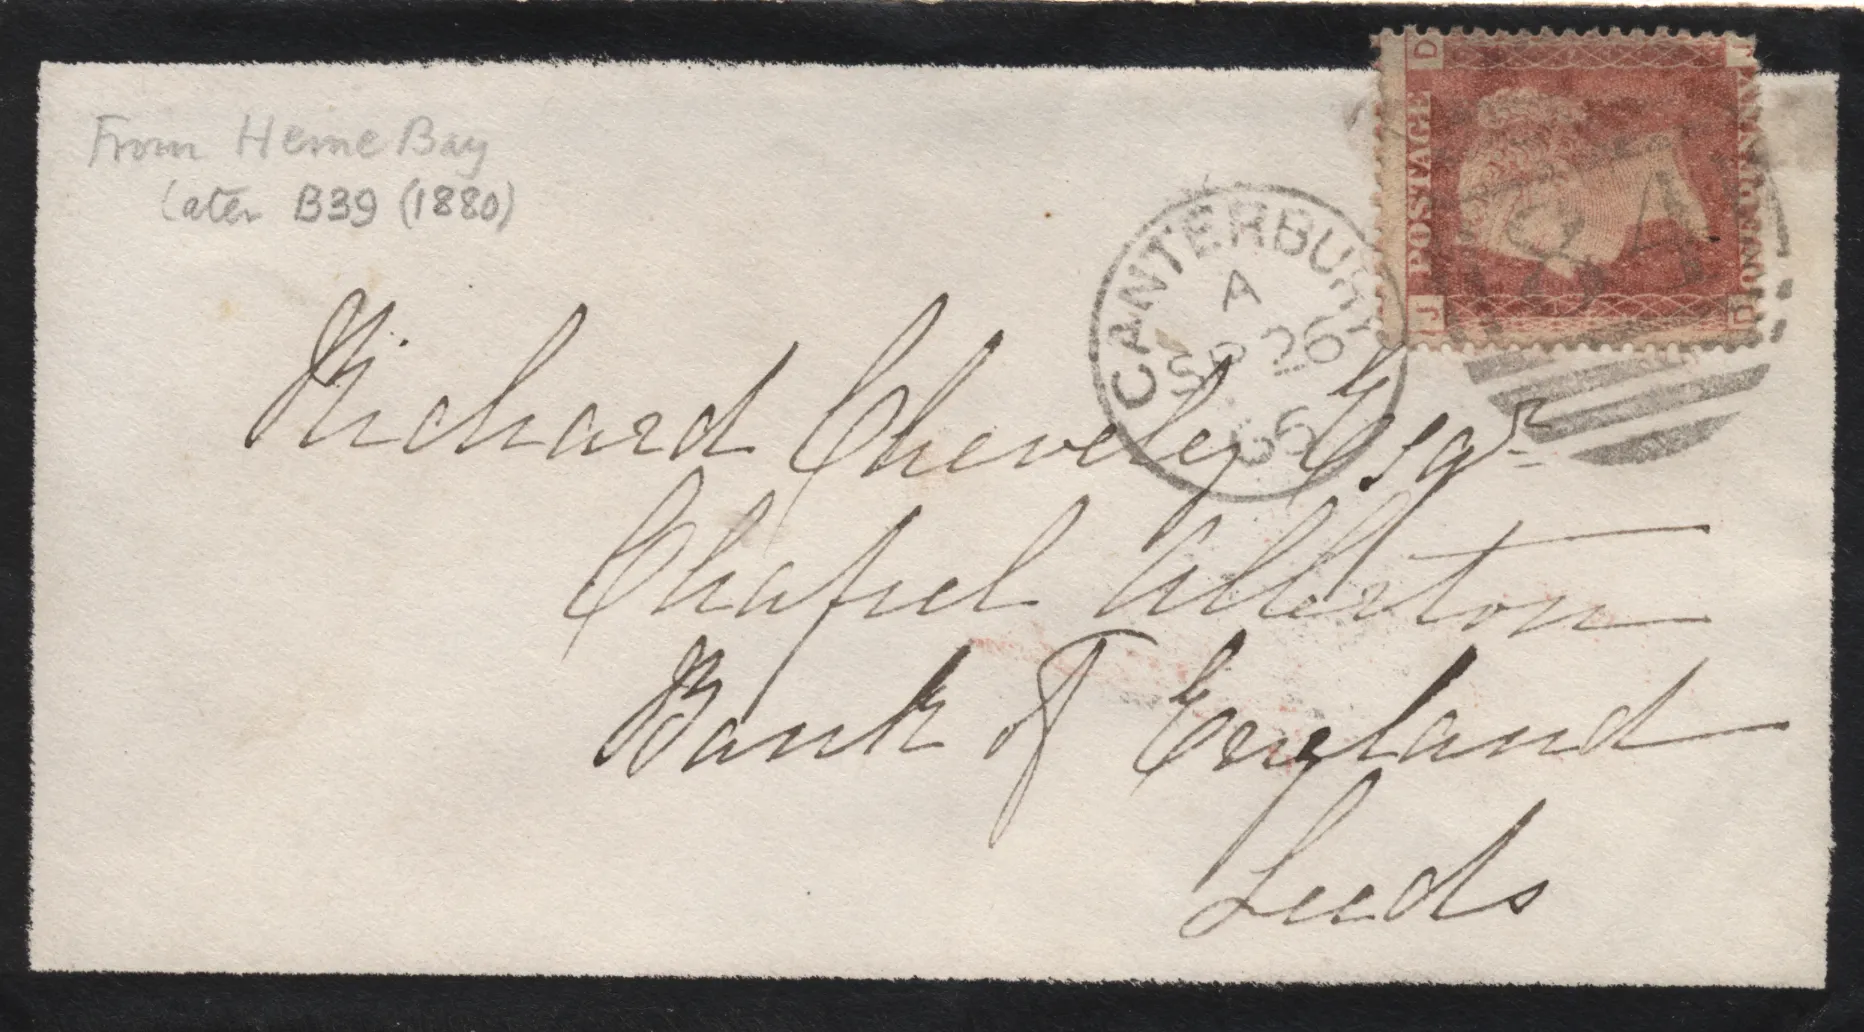 From Herne Bay
later B39 (1880)
CANTERBURY
A
SP 26
66
D J
POSTAGE
ONE PENNY
J D
Richard Cheverly Esqr
Chapel Allerton
Bank of England
Leeds